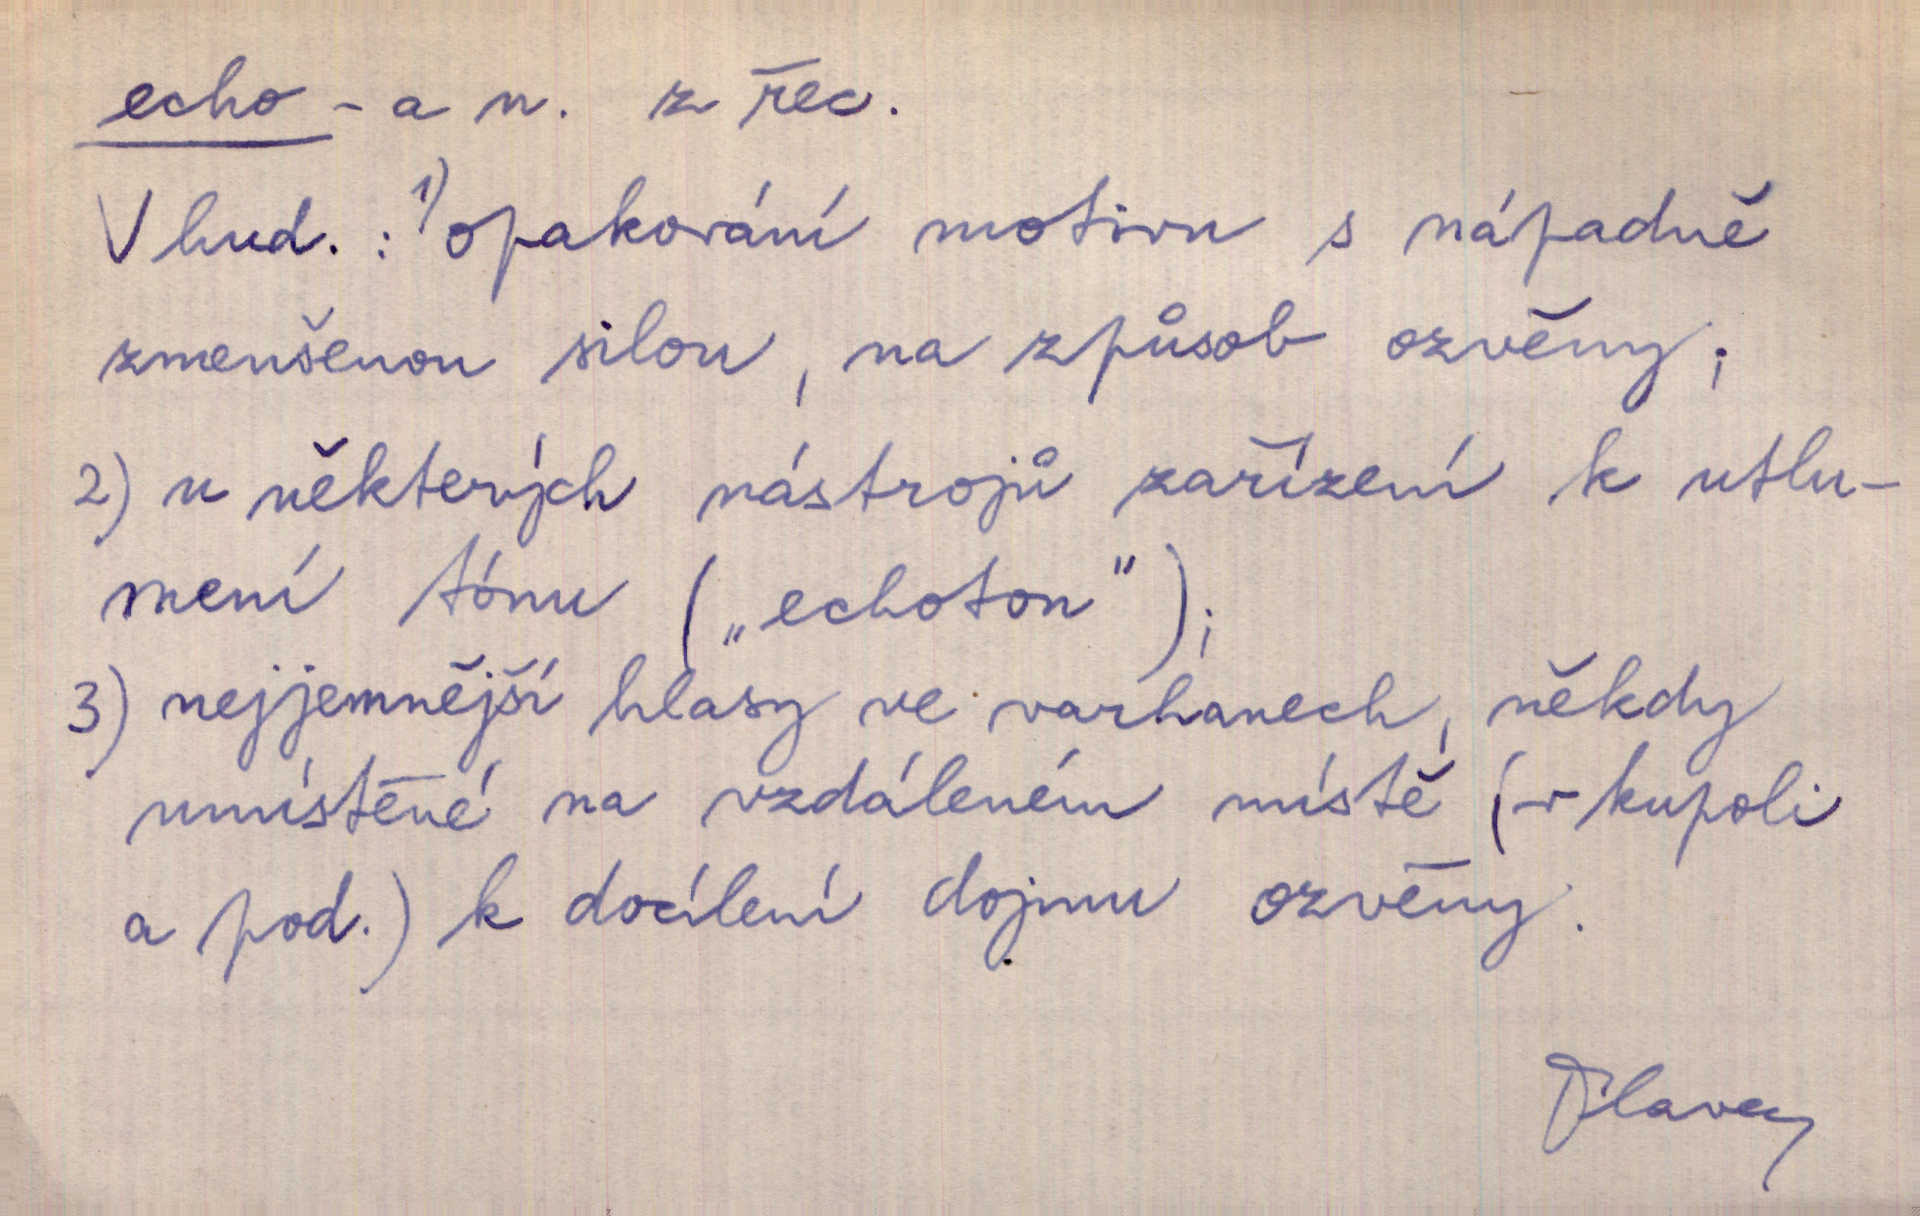 echo - a n. z řec.
V hud. : 1) opakování motivu s nápadně
zmenšenou silou, na způsob ozvěny;
2) u některých nástrojů zařízení k utlu-
mení tónu („echoton");
3) nejjemnější hlasy ve varhanech, někdy
umístěné na vzdáleném místě (v kupoli
a pod.) k docílení dojmu ozvěny.